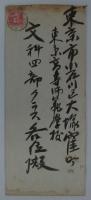 東京市小石川区大塚窪町
東京高等師範学校
文科四部クラス各位殿